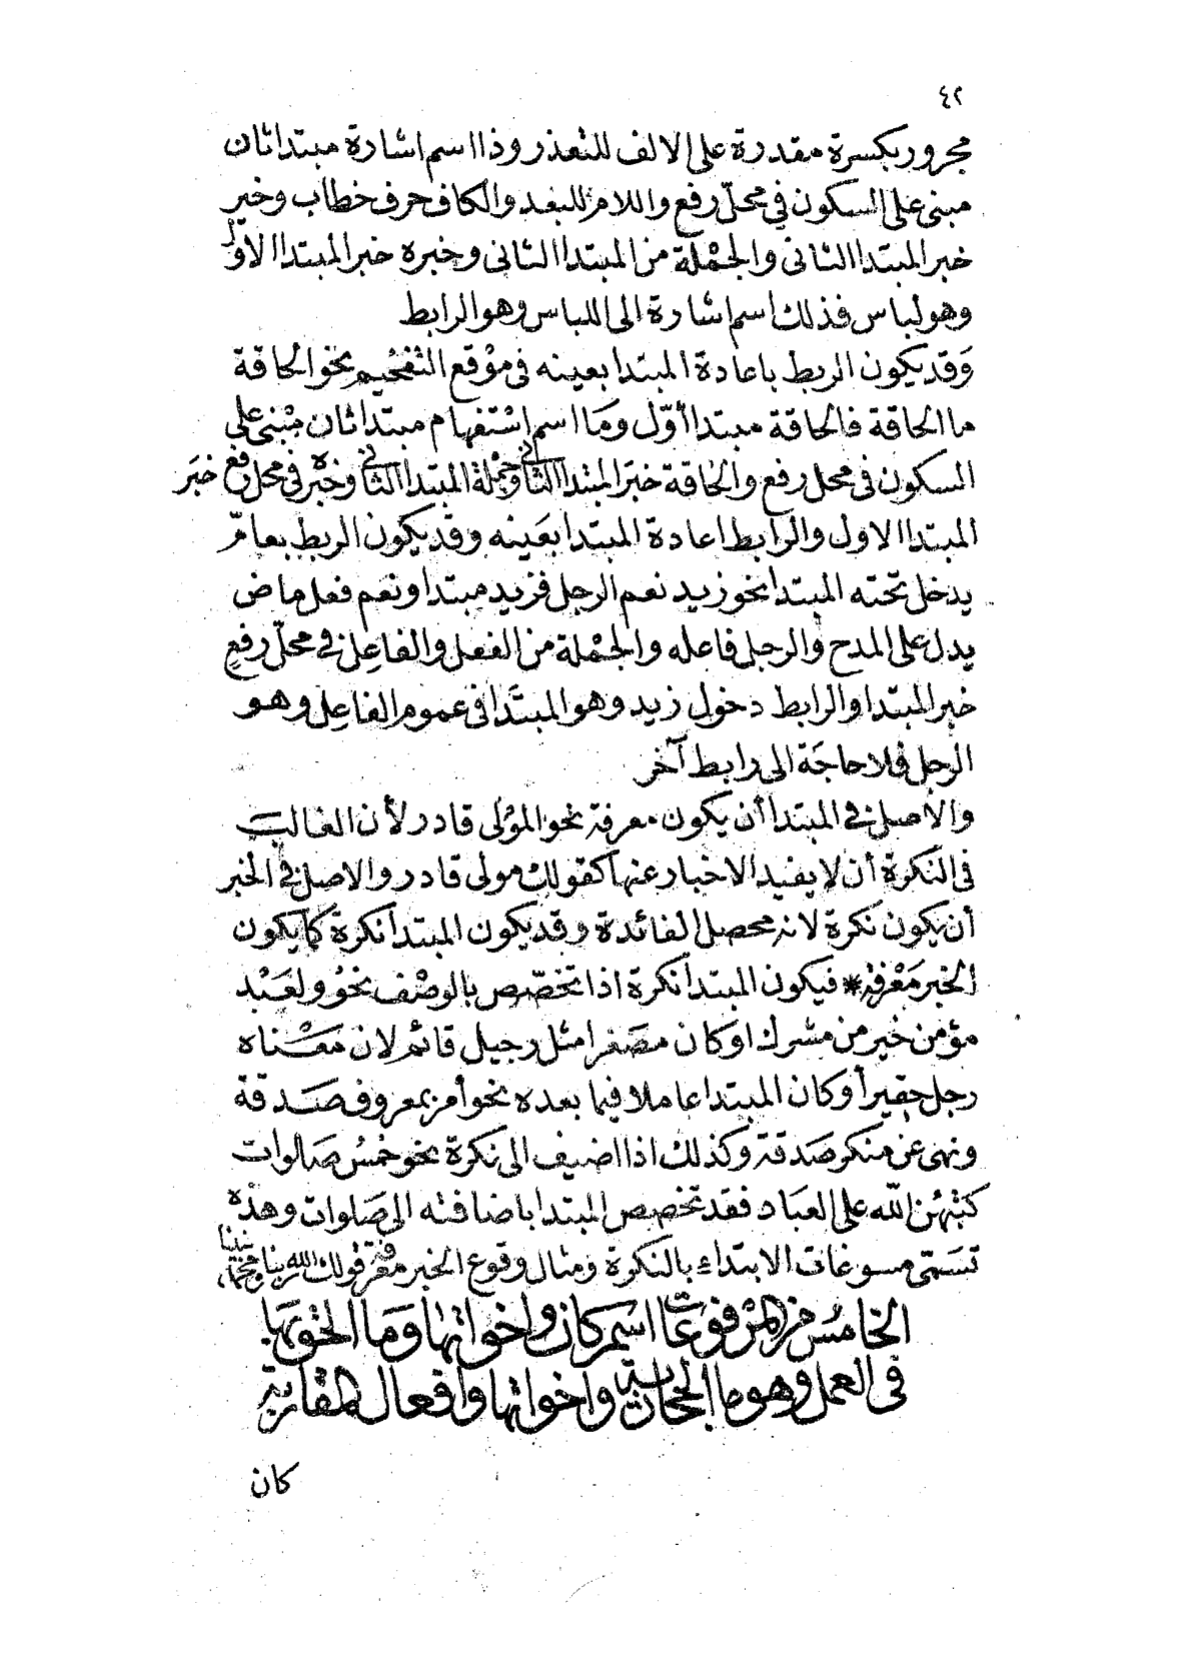 ٤٢
مجرور بكسرة مقدرة على الالف للتعذر وذا اسم اشارة مبتدا ثان
مبنى على السكون في محلّ رفع واللام للبعد والكاف حرف خطاب وخير
خبر المبتدا الثانى والجمْلة من المبتدا الثانى وخبره خبر المبتدا الاوّل
وهو لباس فذلك اسم اشارة الى اللباس وهو الرابط
وَقد يكون الربط باعادة المبتدا بعينه فى موْقع التفخيم نحو الحاقة
ما الحاقة فالحاقة مبتدا أوّل ومَا اسم اسْتفهام مبتدا ثان مبْنى على
السكون فى محل رفع والحاقة خبَر المبتدا الثانى وجمْلة المبتدا الثانى وخبره فى محل رفع خبَر
المبتدا الاول والرابط اعادة المبتدا بعَينه وقد يكون الربط بعامّ
يدخل تحته المبتدا نحو زيد نعم الرجل فزيد مبتدا ونعم فعل ماض
يدل على المدح والرجل فاعله والجمْلة من الفعل والفاعِل في محلّ رفع
خبر المبتدا والرابط دخول زيد وهو المبتَدا فى عموم الفاعِل وهو
الرجل فلا حاجَة الى رابط آخر
والاصل في المبتدا أن يكون معرفة نحو المولى قادر لأن الغالب
فى النكرة أن لا يفيد الاخبار عنها كقولك مولى قادر والاصل في الخبر
أن يكون نكرة لانه محصل الفائدة وقد يكون المبتدأ نكرة كما يكون
الخبر مَعْرفة * فيكون المبتدأ نكرة اذا تخصّص بالوصْف نحوُ ولعَبْد
مؤمن خير من مشرك او كان مصَغرا مثل رجيل قائم لان مَعْناه
رجل حقير أو كان المبتدا عاملا فيما بعده نحو أمر بمعروف صَدقة
ونهى عن منكر صَدقة وكذلك اذا اضيف الى نكرة نحو خمسُ صَلوات
كتبهُن الله على العبَاد فقد تخصص المبتدا باضافته الى صَلوات وهذه
تسَمّى مسوغات الابتداء بالنكرة ومثال وقوع الخبر معْرفة قولك الله ربنا ومحمّد نبينا
الخامسُ من المرْفوعَات اسْم كان واخواتها وَما الحق بها
فى العمل وهو ما الحجازية واخواتها وافعال المقاربة
كان